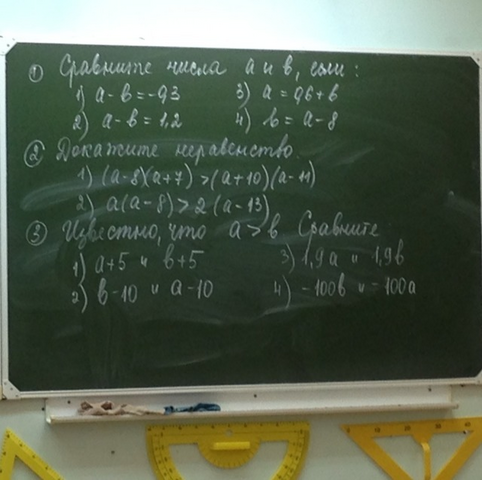 ① Сравните числа a и b, если:
1) a - b = -0,3 3) a = 0,6 + b
2) a - b = 1,2 4) b = a - 8
② Докажите неравенство.
1) (a-8)(a+7) > (a+10)(a-11)
2) a(a-8) > 2(a-13)
③ Известно, что a > b Сравните
1) a+5 и b+5 3) 1,9a и 1,9b
2) b-10 и a-10 4) -100b и -100a